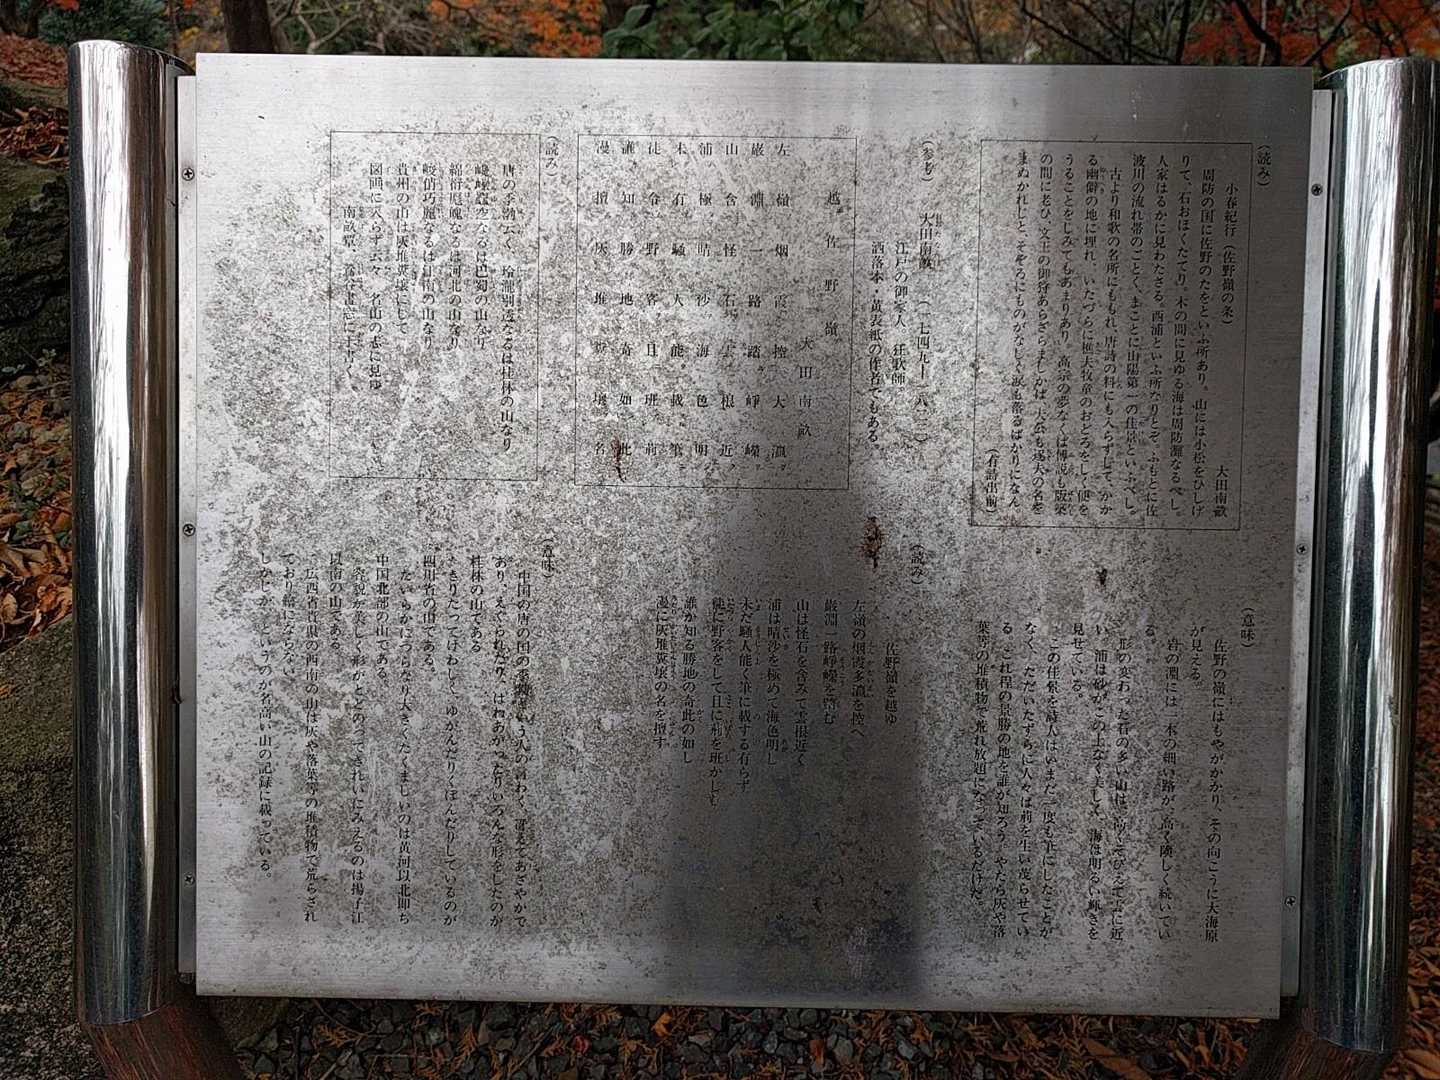 （読み）
小春紀行（佐野嶺の条）
大田南畝
周防の国に佐野のたをといふ所あり。山には小松をひしげ
りて、石おほくたてり。木の間に見ゆる海は周防灘なるべし。
人家はるかに見わたさる。西浦といふ所なりとぞ。ふもとに佐
波川の流れ帯のごとく、まことに山陽第一の佳景といふべし。
古より和歌の名所にももれ、唐詩の料にも入らずして、かか
る幽僻の地に埋れ、いたづらに樵夫牧童のおどろをしく便を
うることをしみてもあまりあり。高宗の夢なくば傅説も版築
の間に老ひ、文王の御狩あらざらましかば、大公も逐夫の名を
まぬかれじと、そぞろにものがなしく涙も落るばかりになん
（石詰出前）
（意味）
佐野の嶺にはもやがかかり、その向こうに大海原
が見える。
岩の淵には一本の細い路が、高く険しく続いてい
る。
形の変わった石の多い山は、高くそびえて雲に近
い、浦は砂がこの上なく美しく、海は明るい輝きを
見せている。
この佳景を詩人はいまだ一度も筆にしたことが
なく、ただいたずらに人々は荊を生い茂らせてい
る。これ程の景勝の地を誰が知ろう。やたら灰や落
葉等の堆積物で荒れ放題になっているだけだ。
（参考）
大田南畝（一七四九―一八二三）
江戸の御家人 狂歌師
洒落本・黄表紙の作者でもある。
越佐野嶺
大田南畝
左嶺烟霞控大瀛
巌淵一路踏崢嶸
山含怪石雲根近
浦極晴沙海色明
未有騒人能載筆
徒令野客且班荊
誰知勝地奇如此
漫擅灰堆糞壌名
（読み）
佐野嶺を越ゆ
左嶺の烟霞大瀛を控へ
巌淵一路崢嶸を踏む
山は怪石を含みて雲根近く
浦は晴沙を極めて海色明し
未だ騒人能く筆に載する有らず
徒に野客をして且に荊を班かしむ
誰か知る勝地の奇此の如し
漫に灰堆糞壌の名を擅す
（読み）
唐の李渤云く、玲瓏剔透なるは桂林の山なり
巉嵯竄空なるは巴蜀の山なり
綿衍厖魄なるは河北の山なり
峻俏巧麗なるは江南の山なり
貴州の山は灰堆糞壌にして
図画に入らず云々 名山の志に見ゆ
（意味）
中国の唐の国の李渤という人の言わく、冴えてあざやかで
あり、えぐられたり、はねあがったりいろんな形をしたのが
桂林の山である
きりたってけわしく、ゆがんだりくぼんだりしているのが
四川省の山である。
たいらかにつらなり大きくたくましいのは黄河以北即ち
中国北部の山である。
容貌が美しく形がととのってきれいにみえるのは揚子江
以南の山である。
広西省貴県の西南の山は灰や落葉等の堆積物で荒らされ
ており絵にならない。
しかじかというのが名高い山の記録に載っている。